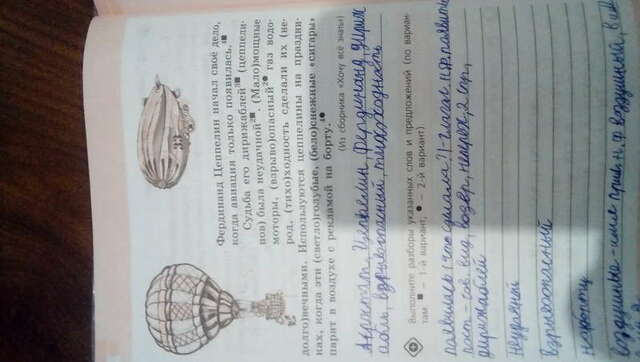 33
Фердинанд Цеппелин начал своё дело,
когда авиация только появилась.¹■
Судьба его дирижаблей³■ (цеппели-
нов) была неудачной²■. (Мало)мощные
моторы, (взрыво)опасный²● газ водо-
род, (тихо)ходность сделали их (не-
долго)вечными. Используются цеппелины на праздни-
ках, когда эти (светло)голубые, (бело)снежные «сигары»
парят в воздухе с рекламой на борту.⁴●
(Из сборника «Хочу всё знать»)
Аэростат, Цеппелин, Фердинанд, дириж
абль, взрывоопасный, тихоходность
Выполните разборы указанных слов и предложений (по вариан-
там: ■ – 1-й вариант, ● – 2-й вариант).
появилась (что сделала?) - глагол. н.ф. появить
пост - сов. вид, возвр, неперех, 2 спр,
дирижаблей
неудачной
взрывоопасный
на борту
воздушные - имя прил. н.ф воздушный,